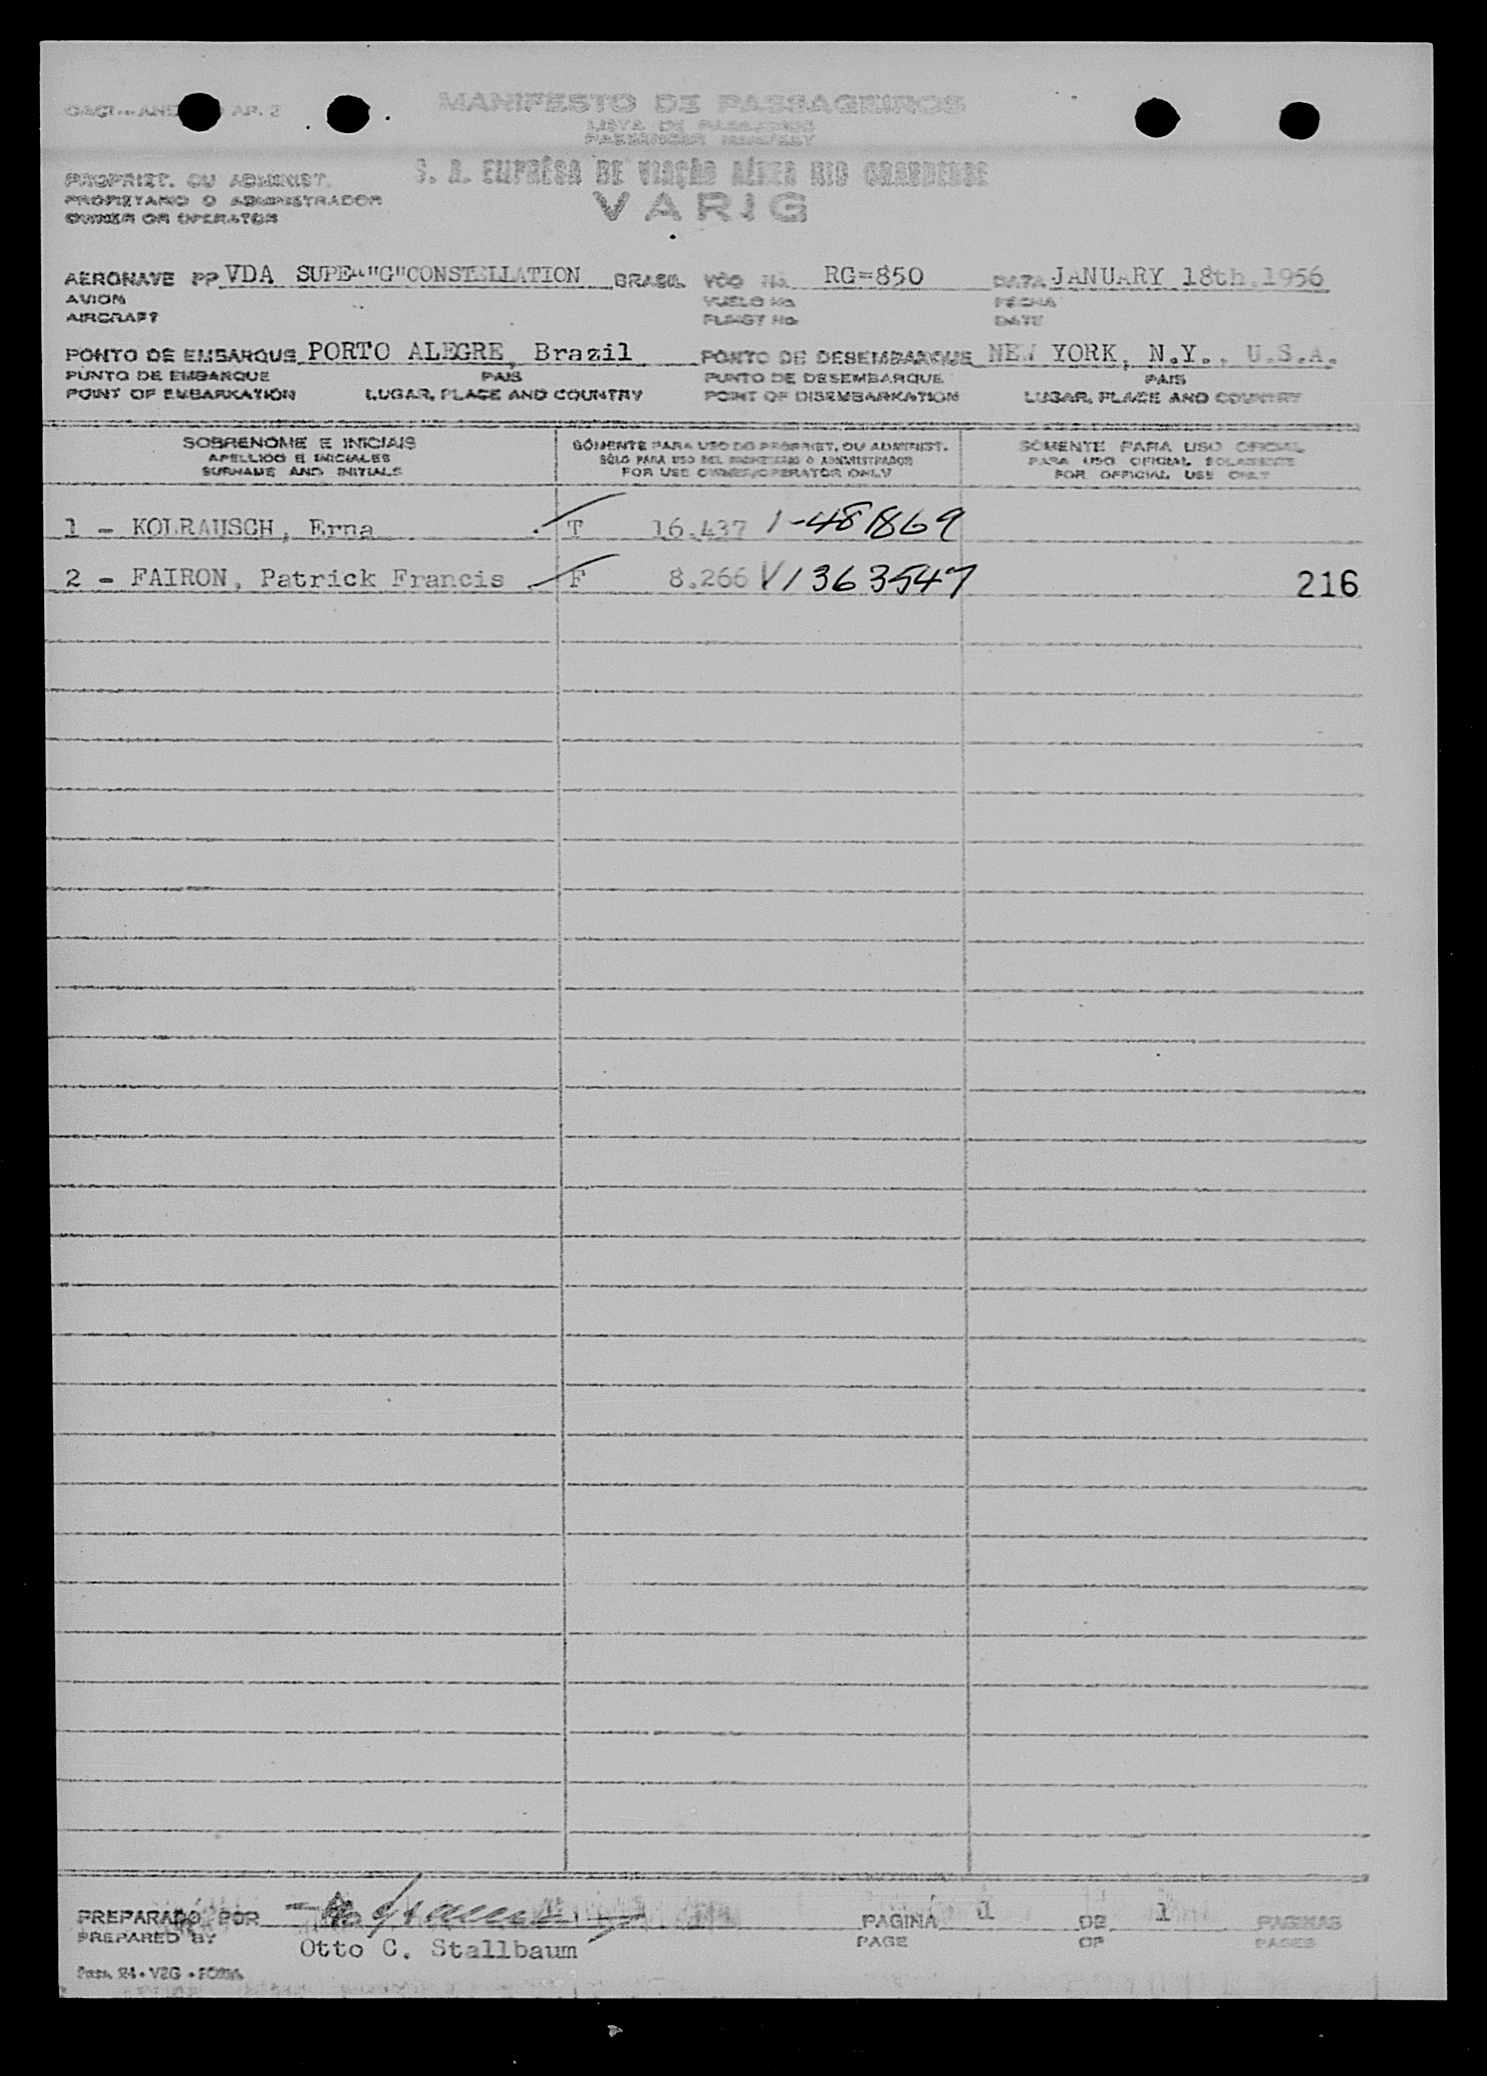 MANIFESTO DE PASSAGEIROS
LISTA DE PASAJEROS
PASSENGER MANIFEST
PROPRIET. OU ADMINIST.
PROPIETARIO O ADMINISTRADOR
OWNER OR OPERATOR
S. A. EMPRÊSA DE VIAÇÃO AÉREA RIO GRANDENSE
VARIG
AERONAVE PP VDA SUPER "G" CONSTELLATION BRASIL VÔO No. RG=850 DATA JANUARY 18th,1956
AVION VUELO No. FECHA
AIRCRAFT FLIGHT No. DATE
PONTO DE EMBARQUE PORTO ALEGRE, Brazil PONTO DE DESEMBARQUE NEW YORK, N.Y., U.S.A.
PUNTO DE EMBARQUE PAIS PUNTO DE DESEMBARQUE PAIS
POINT OF EMBARKATION LUGAR, PLACE AND COUNTRY POINT OF DISEMBARKATION LUGAR, PLACE AND COUNTRY
SOBRENOME E INICIAIS SÒMENTE PARA USO DO PROPRIET. OU ADMINIST. SOMENTE PARA USO OFICIAL
APELLIDO E INICIALES SÓLO PARA USO DEL PROPIETARIO O ADMINISTRADOR PARA USO OFICIAL SOLAMENTE
SURNAME AND INITIALS FOR USE OWNER/OPERATOR ONLY FOR OFFICIAL USE ONLY
1 - KOLRAUSCH, Erna T 16.437 1-481869
2 - FAIRON, Patrick Francis F 8.266 V1363547 216
PREPARADO POR PAGINA 1 DE 1 PAGINAS
PREPARED BY Otto C. Stallbaum PAGE OF PAGES